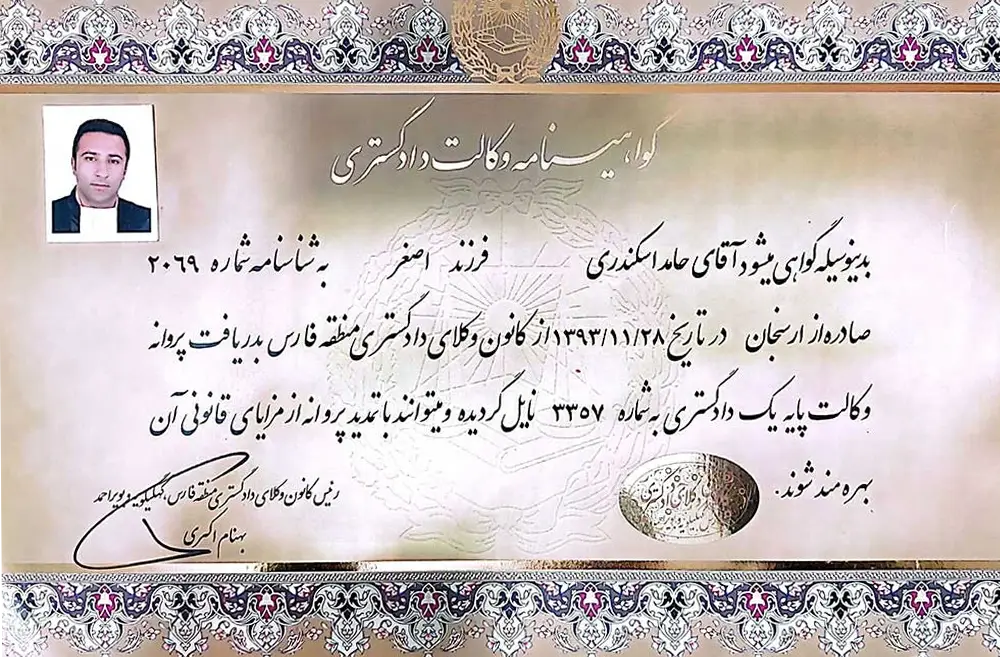 گواهینامه وکالت دادگستری
بدینوسیله گواهی میشود آقای حامد اسکندری فرزند اصغر به شناسنامه شماره ۲۰۶۹
صادره از ارسنجان در تاریخ ۱۳۹۳/۱۱/۲۸ از کانون وکلای دادگستری منطقه فارس بدریافت پروانه
وکالت پایه یک دادگستری به شماره ۳۳۵۷ نایل گردیده و میتوانند با تمدید پروانه از مزایای قانونی آن
بهره مند شوند.
رئیس کانون وکلای دادگستری منطقه فارس، کهگیلویه و بویراحمد
بهنام اکبری